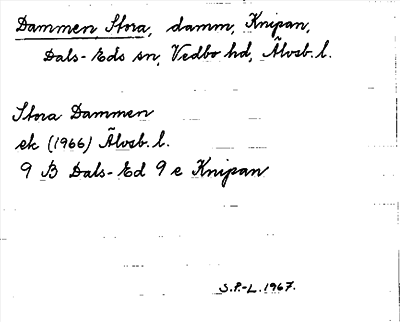 Dammen Stora, damm, Knipan,
Dals-Eds sn, Vedbo hd, Älvsb. l.
Stora Dammen
ek (1966) Älvsb. l.
9 B Dals-Ed 9 e Knipan
S.P.-L. 1967.